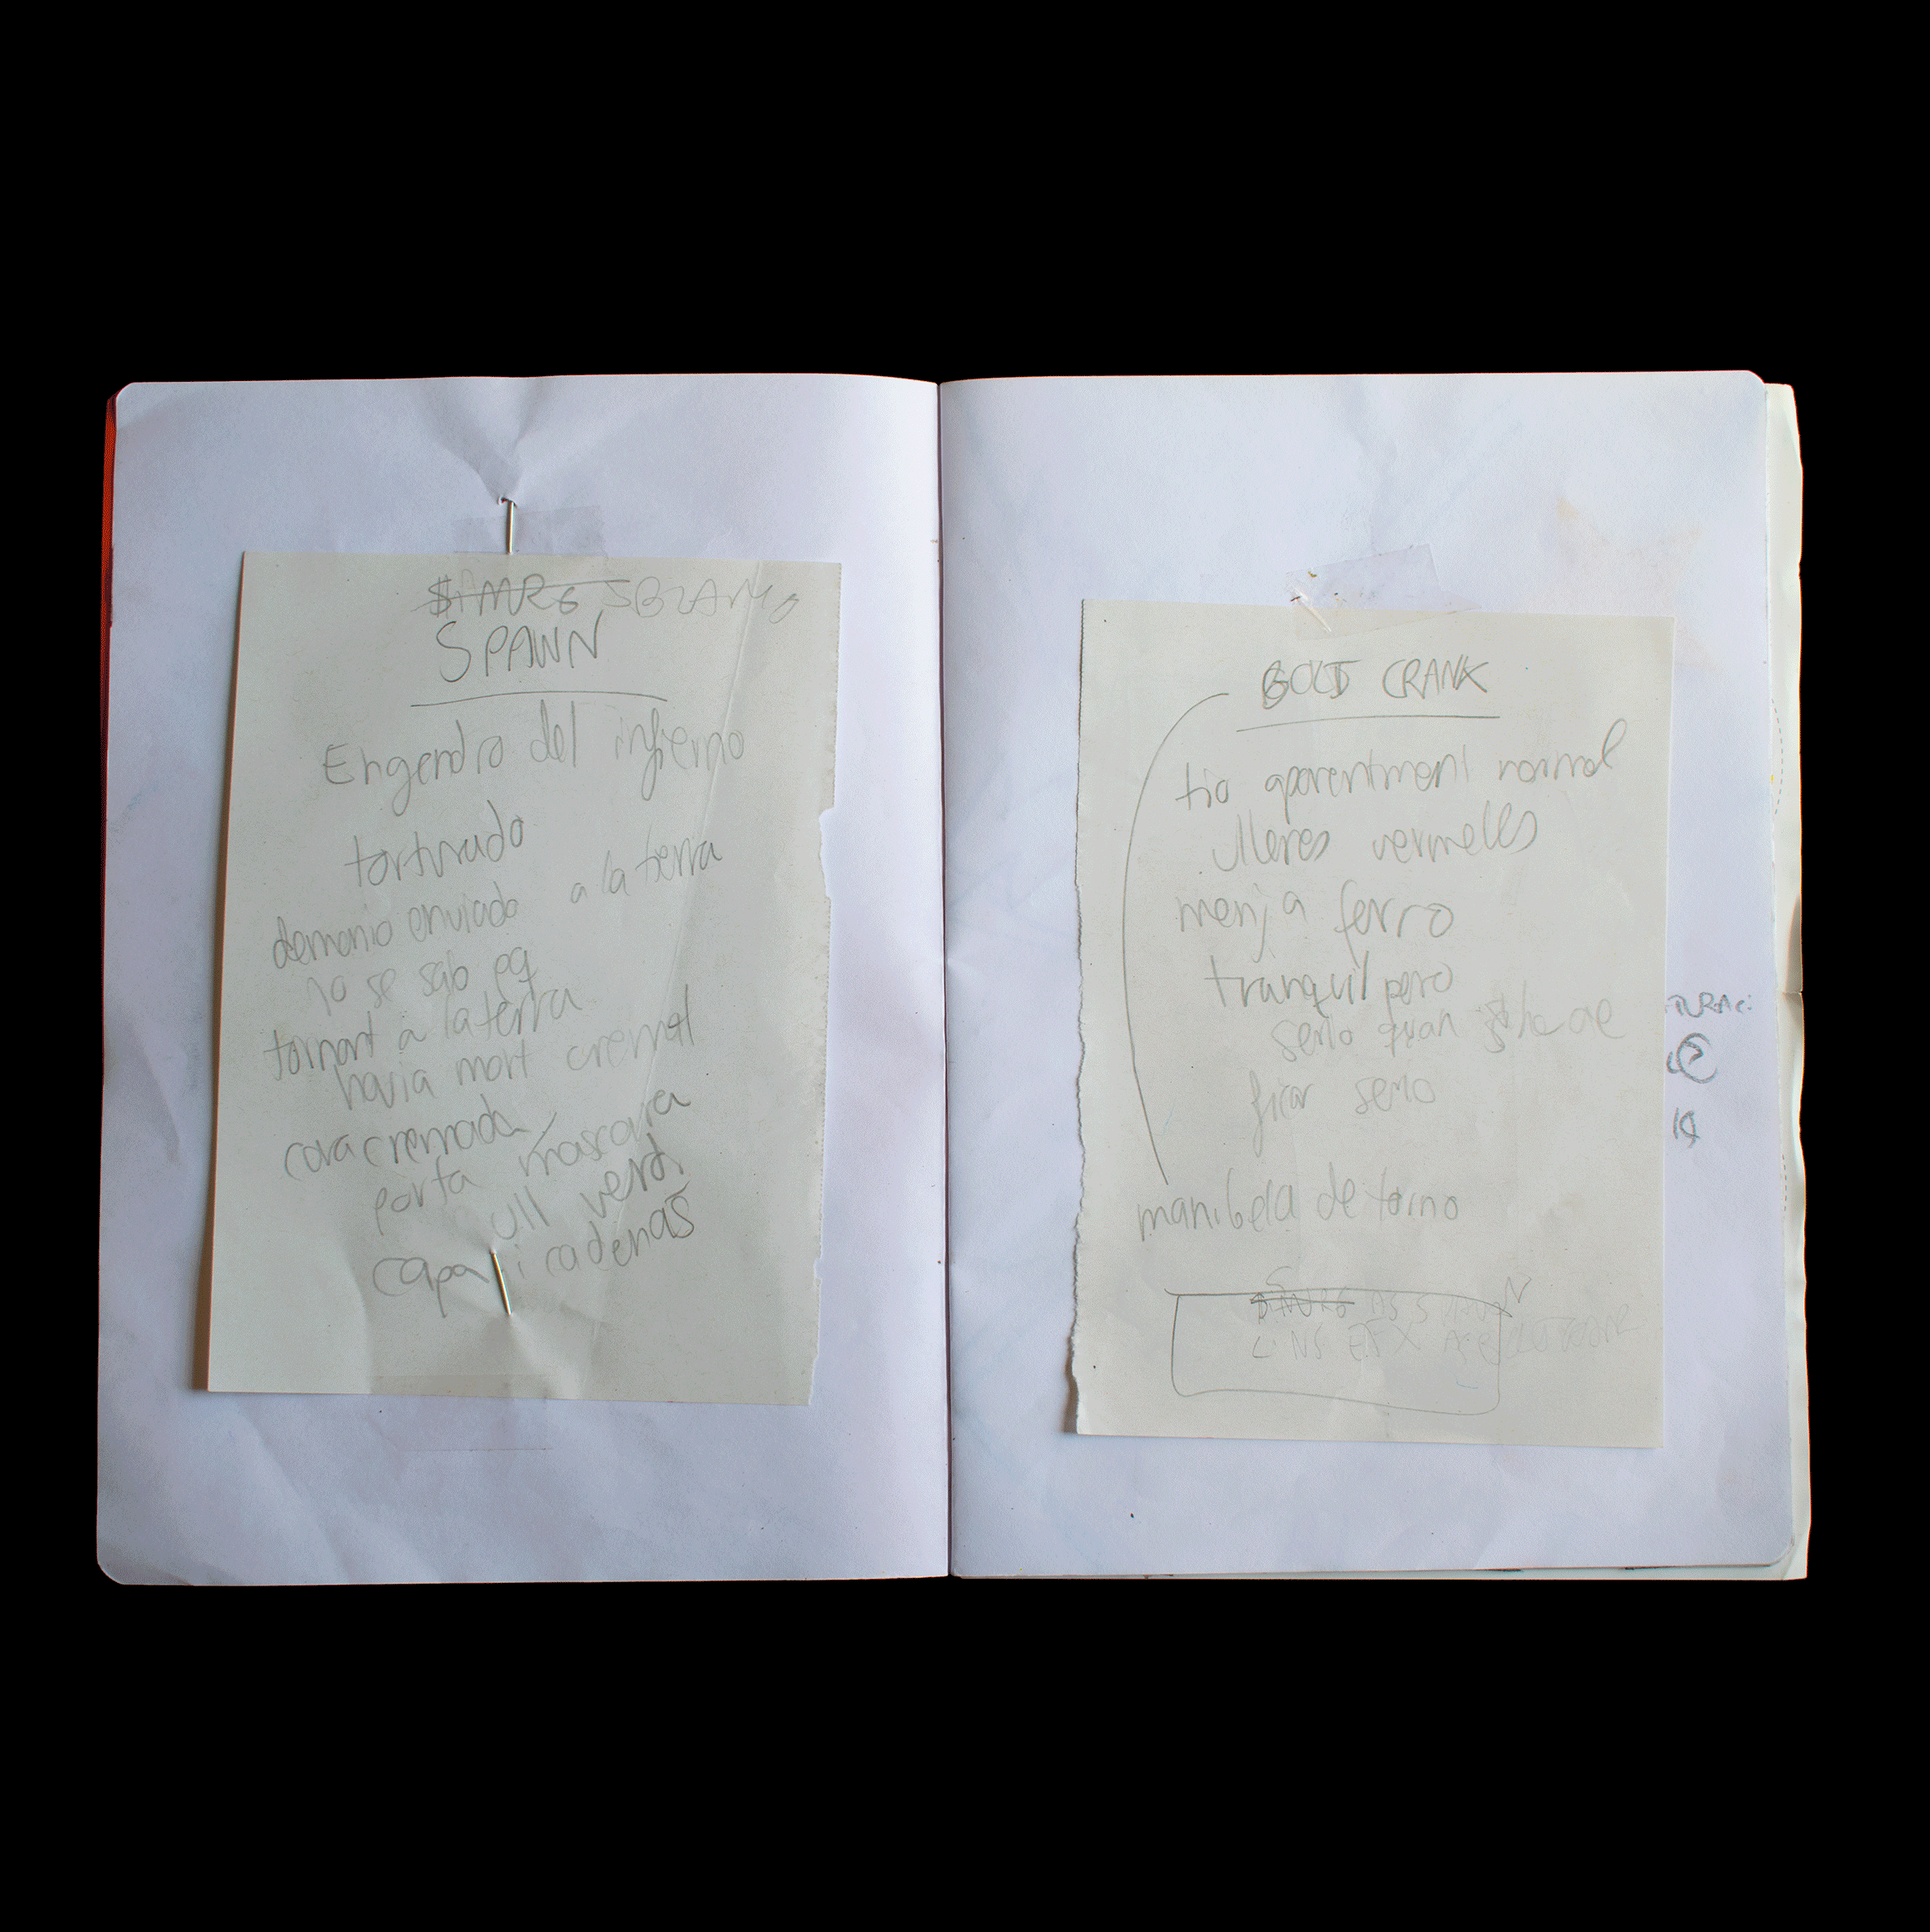 SPAWN
Engendro del infierno
torturado
demonio enviado a la terra
no se sab pq
tornant a la terra
havia mort cremat
cara cremada
porta mascara
ull verd
capa i cadenas
GOLD CRANK
tio aparentment normal
ulleres vermelles
menja ferro
tranquil pero
serio quan s'ha de
ficar serio
manibela de torno